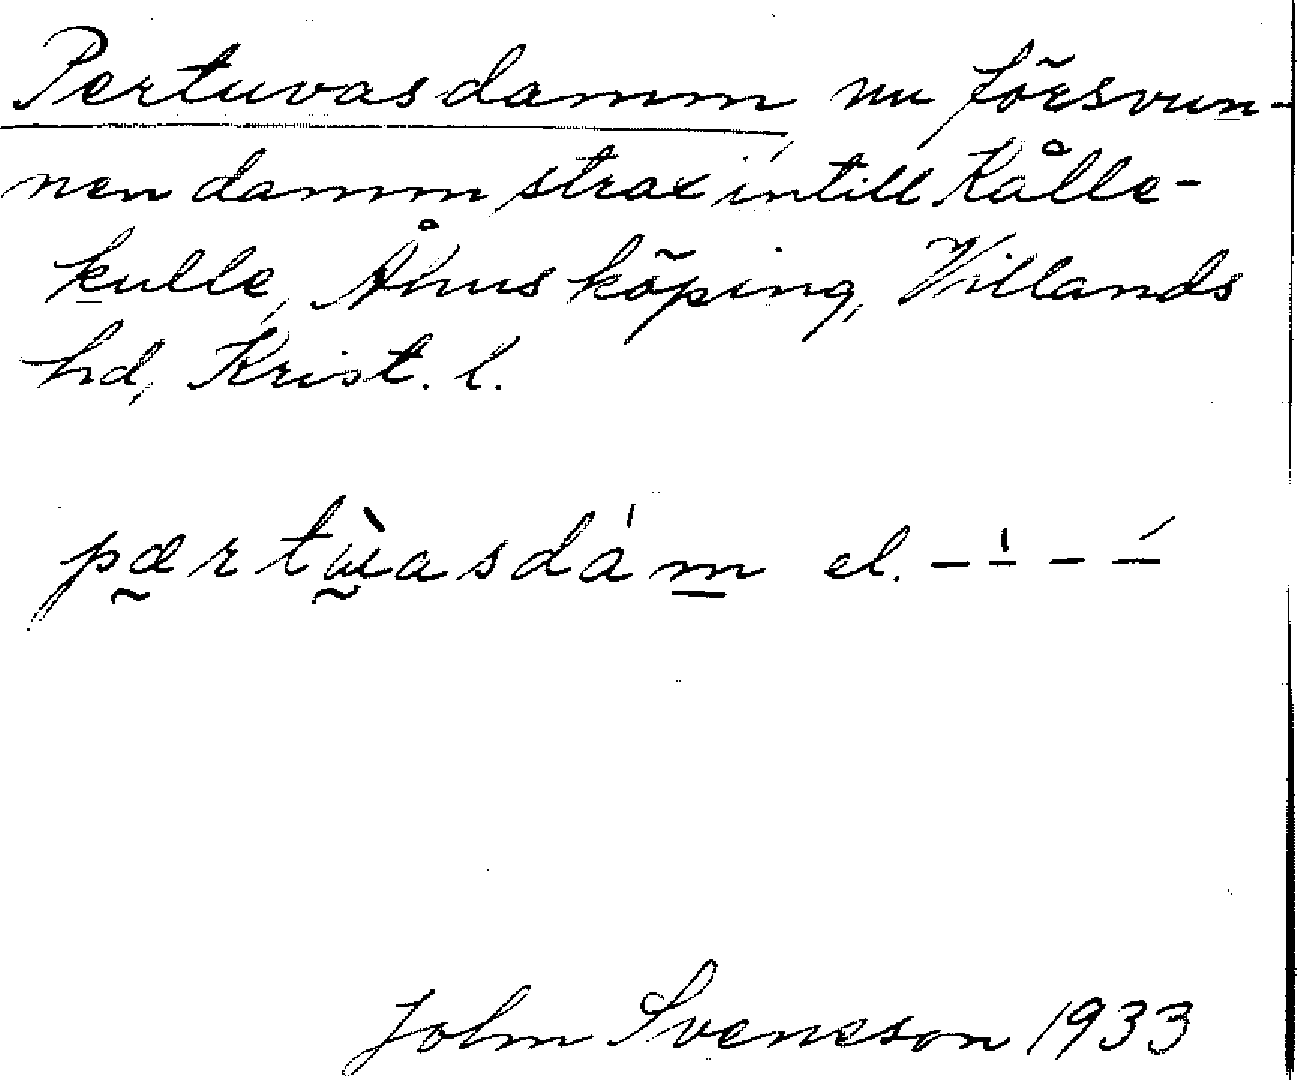 Pertuvasdamm, nu försvun-
nen damm strax intill Kålle-
kulle, Åhus köping, Villands
hd, Krist. l.
el.
John Svensson 1933